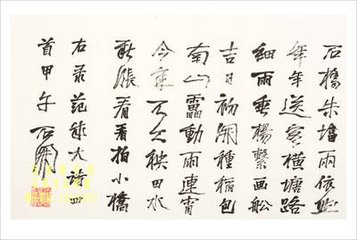 石橋朱塔兩依然
年年送客橫塘路
細雨垂楊繫画船
吉日初開種稻包
南山雷動雨連宵
今年不欠秧田水
新漲看看拍小橋
右录范成大诗四
首甲午石開